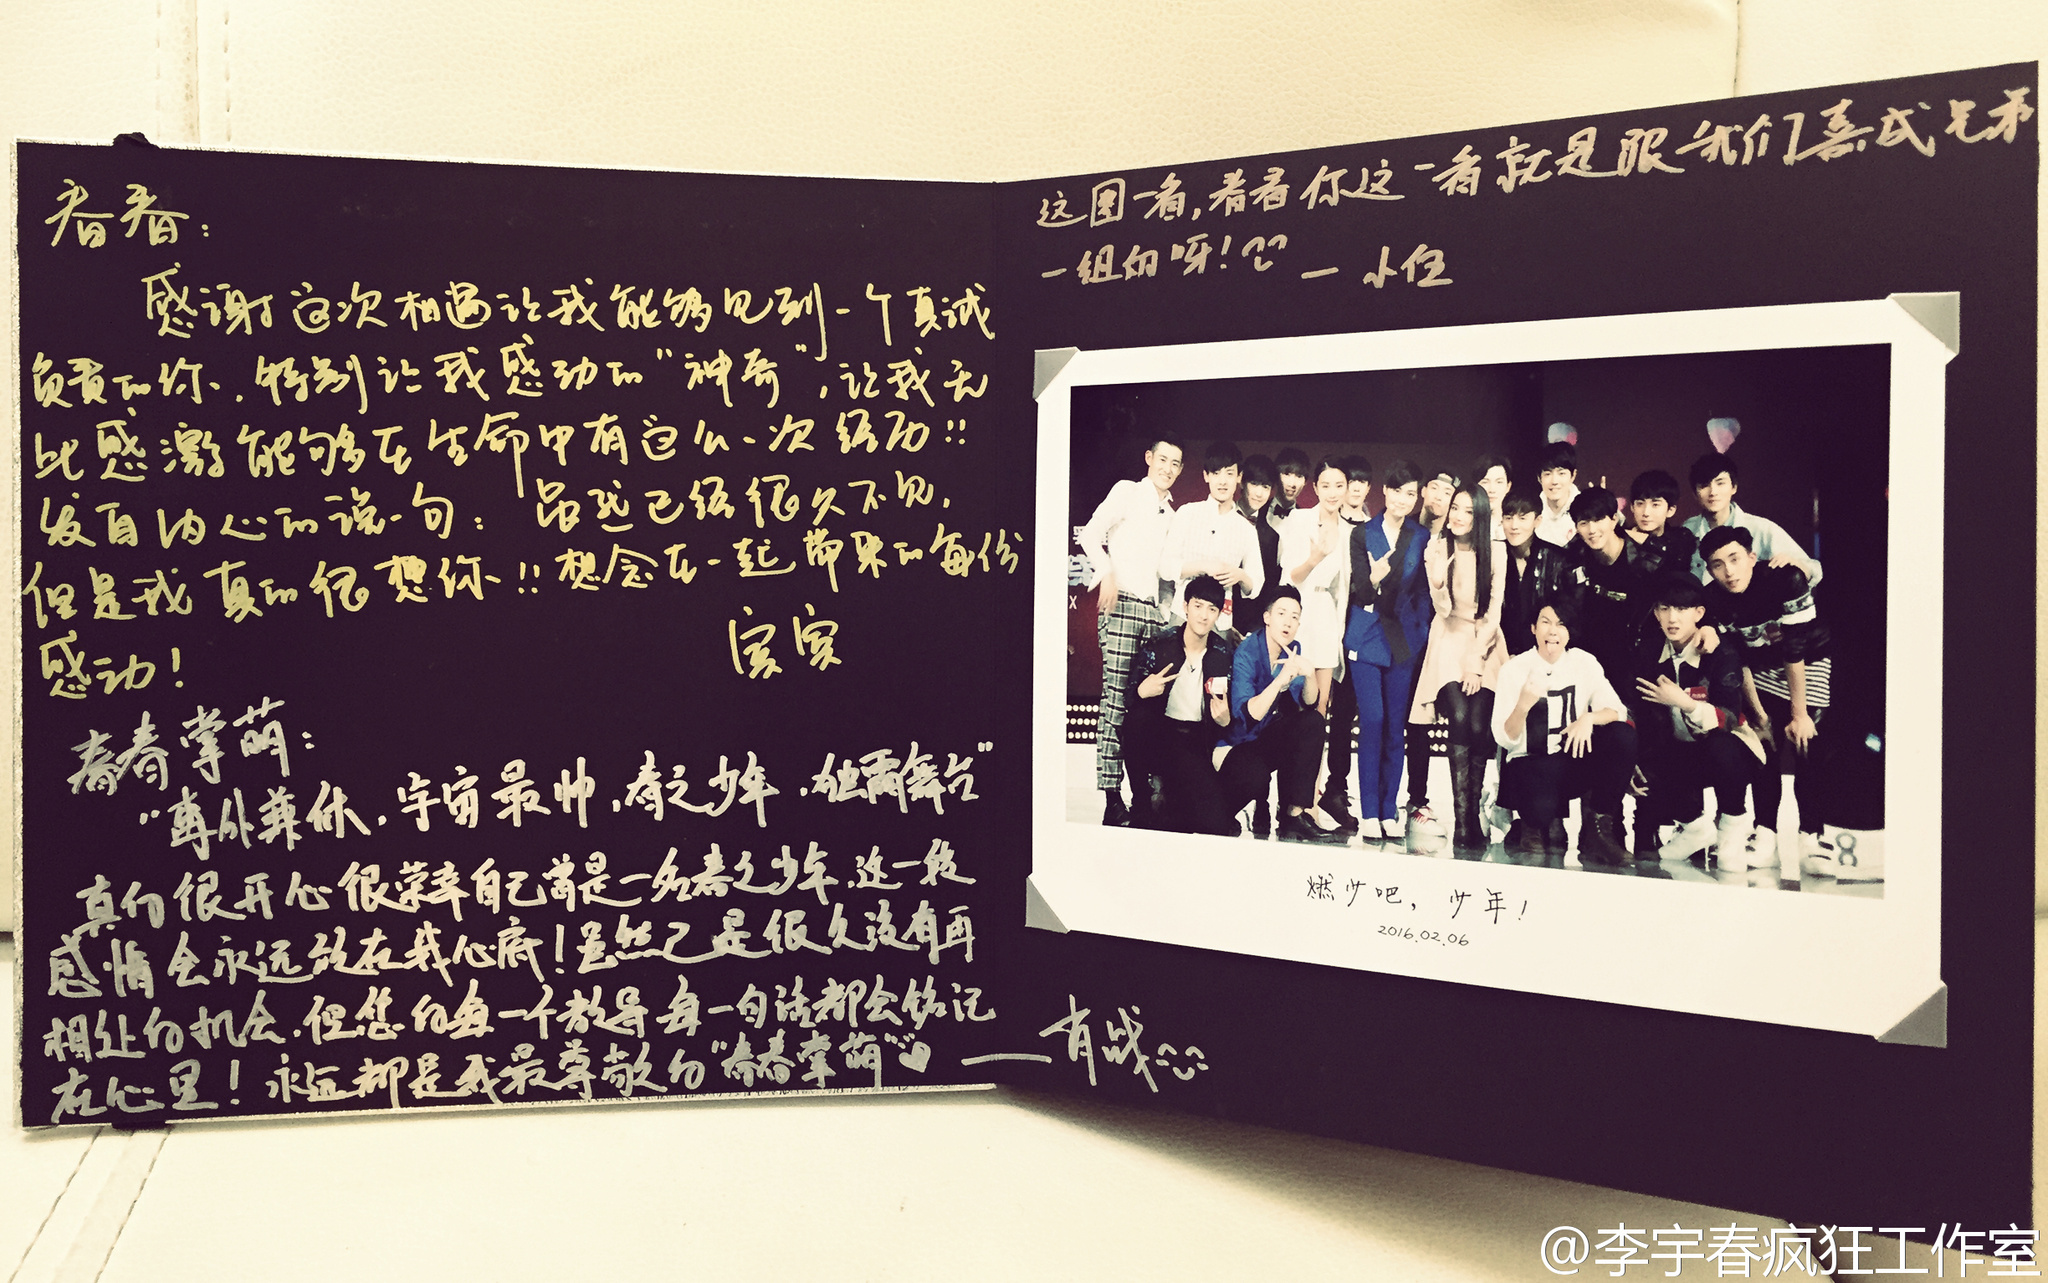 春春：
感谢这次相遇让我能够见到一个真诚
负责的你、特别让我感动的“神奇”，让我无
比感激能够在生命中有这么一次经历!!
发自内心的说一句：虽然已经很久不见，
但是我真的很想你!!想念在一起带来的每份
感动！
宾宾
春春掌萌：
“内外兼休，宇宙最帅，春之少年，独霸舞台”
真的很开心很荣幸自己曾是一名春之少年，这一段
感情会永远放在我心底！虽然已是很久没有再
相处的机会，但您的每一个教导每一句话都会铭记
在心里！永远都是我最尊敬的“春春掌萌”
——有战
这图一看，看看你这一看就是跟我们喜武兄弟
一组的呀！
— 小任
燃少吧，少年！
2016.02.06
@李宇春疯狂工作室